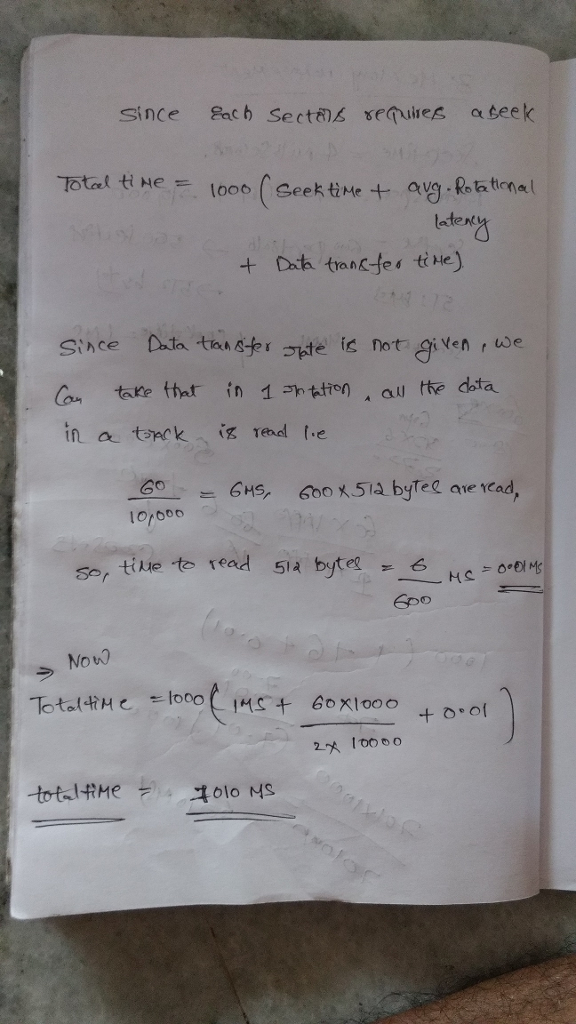 Since Each Sectors requires a seek
Total time = 1000 ( Seek time + avg. Rotational
latency
+ Data transfer time)
Since Data transfer rate is not given, we
Can take that in 1 rotation, all the data
in a track is read i.e
60
10,000
= 6MS, 600 X 512 bytes are read,
So, time to read 512 bytes = 6 MS = 0.01 MS
600
⇒ Now
Total time = 1000 ( 1MS + 60X1000 + 0.01 )
2X 10000
total time = 7010 MS